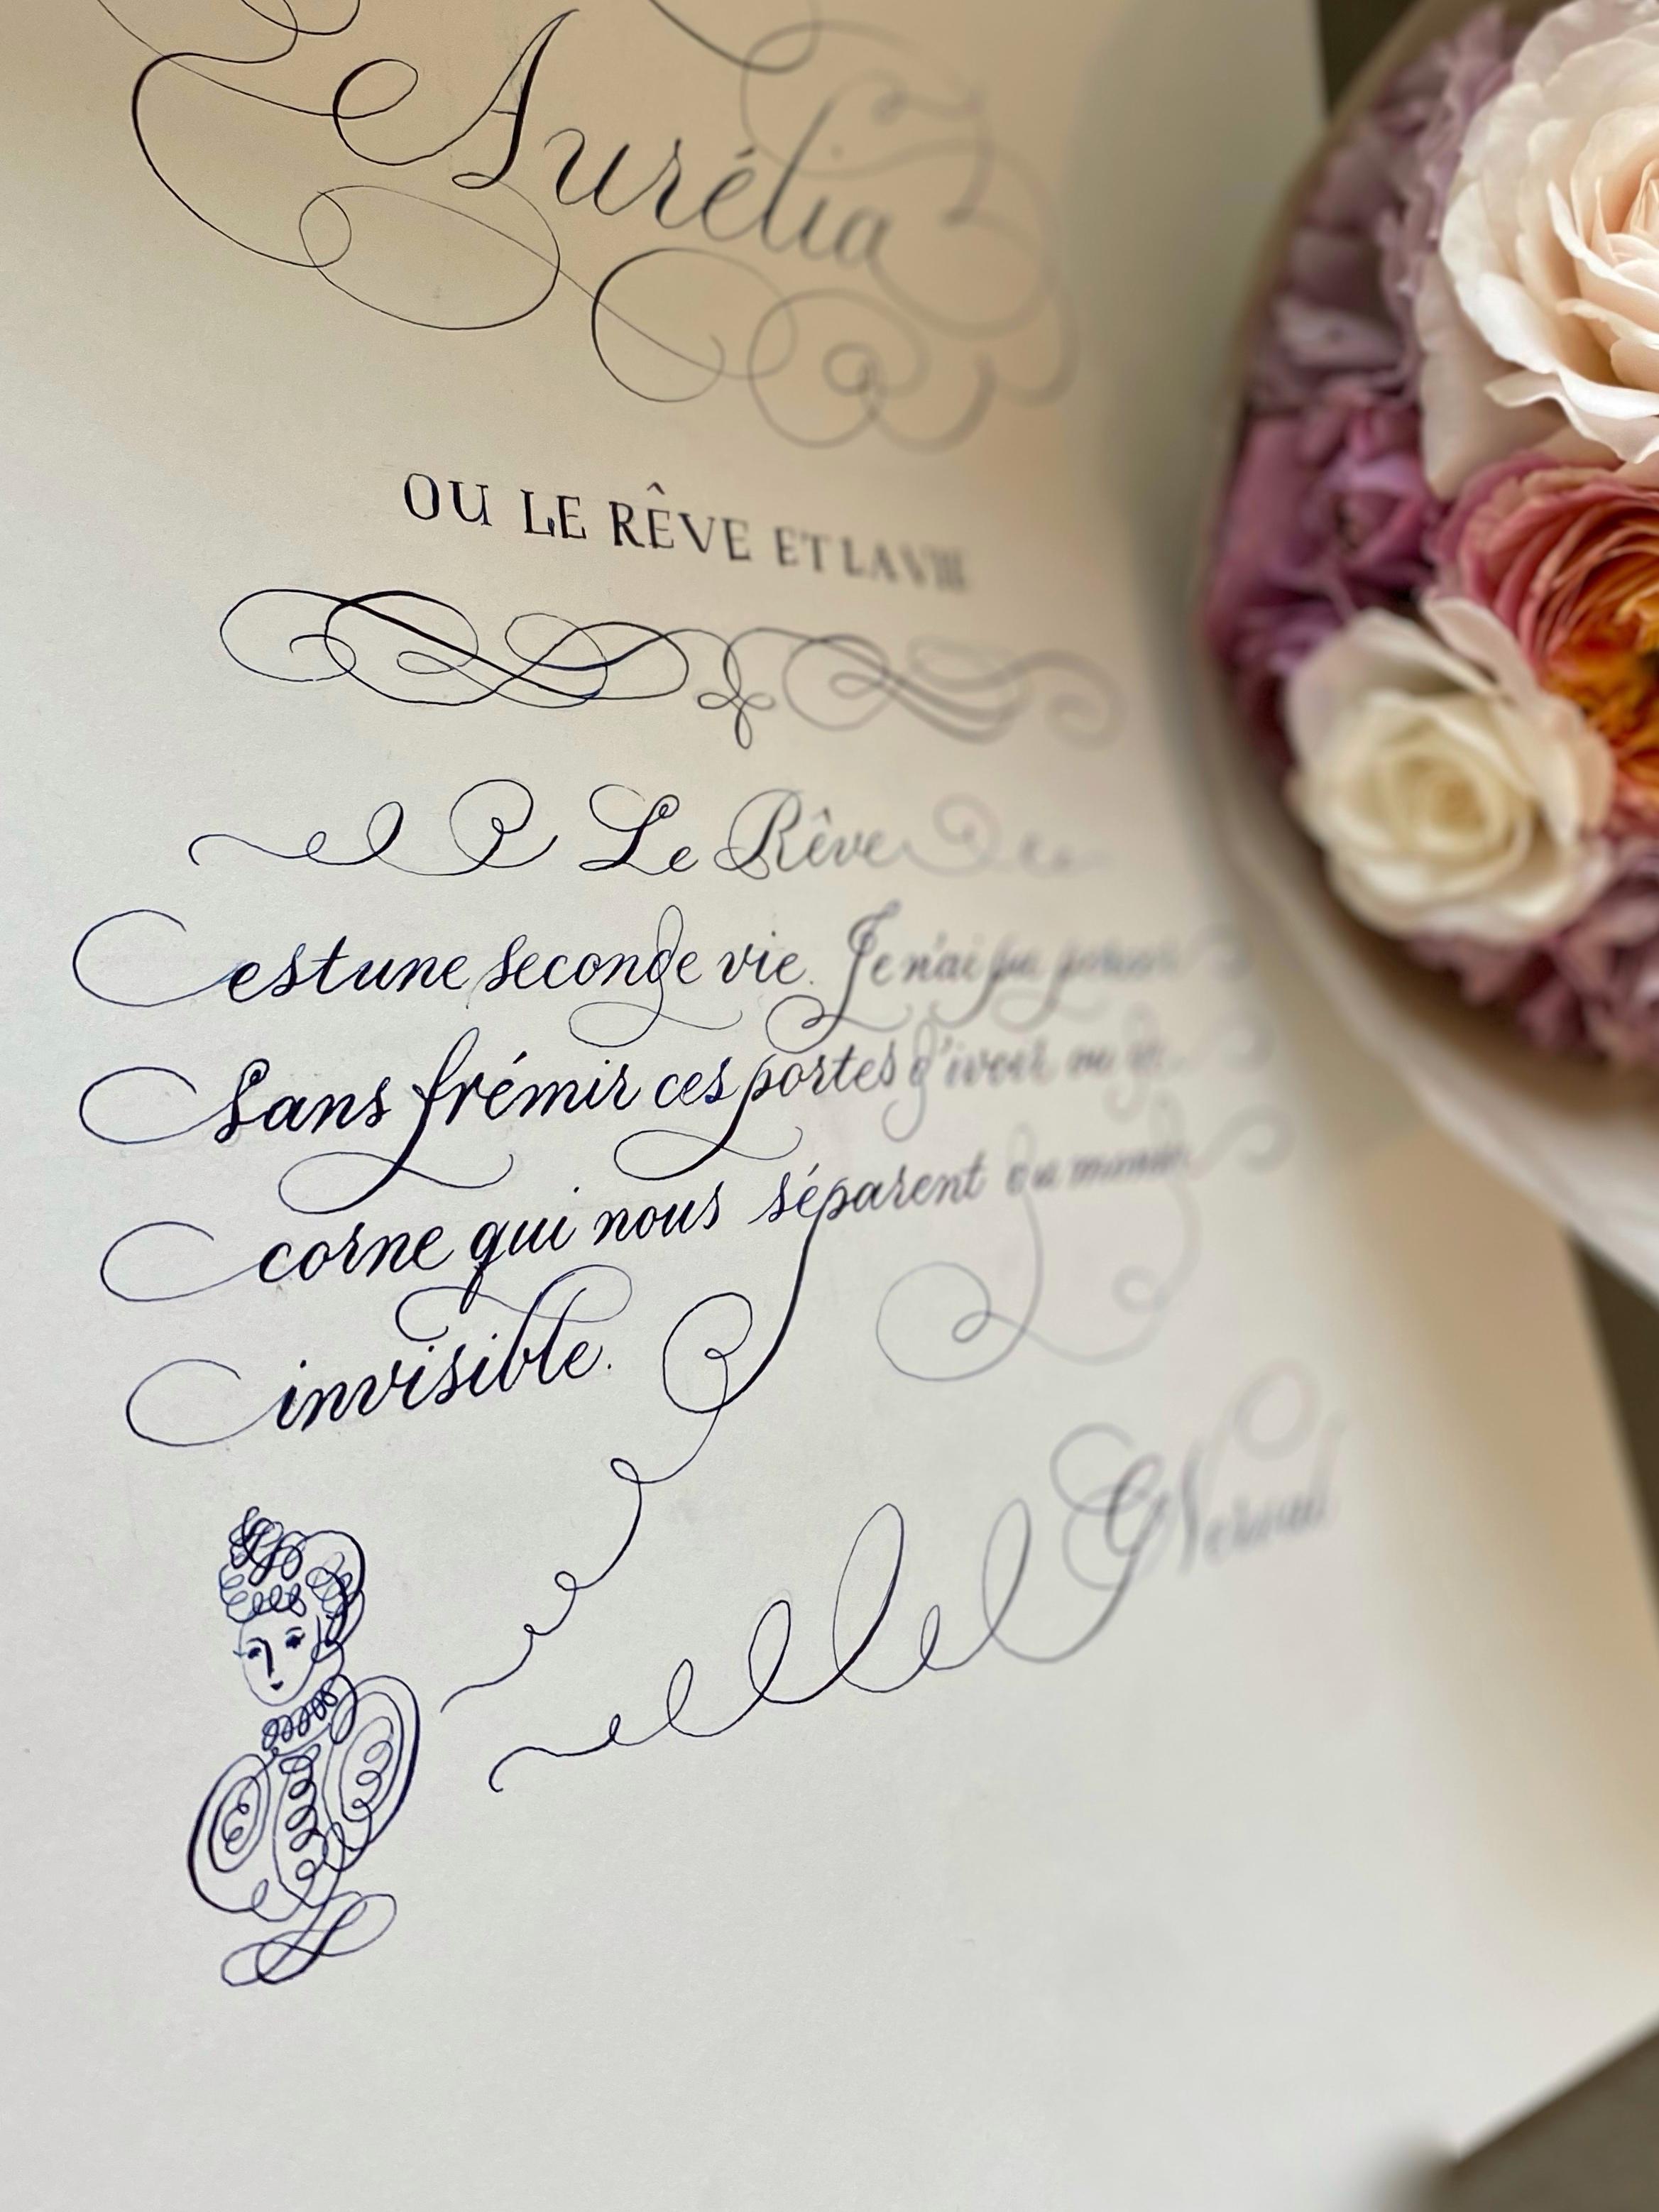 Aurélia
OU LE RÊVE ET LA VIE
Le Rêve
est une seconde vie. Je n'ai pu percer
Sans frémir ces portes d'ivoire ou de
corne qui nous séparent du monde
invisible.
G Nerval